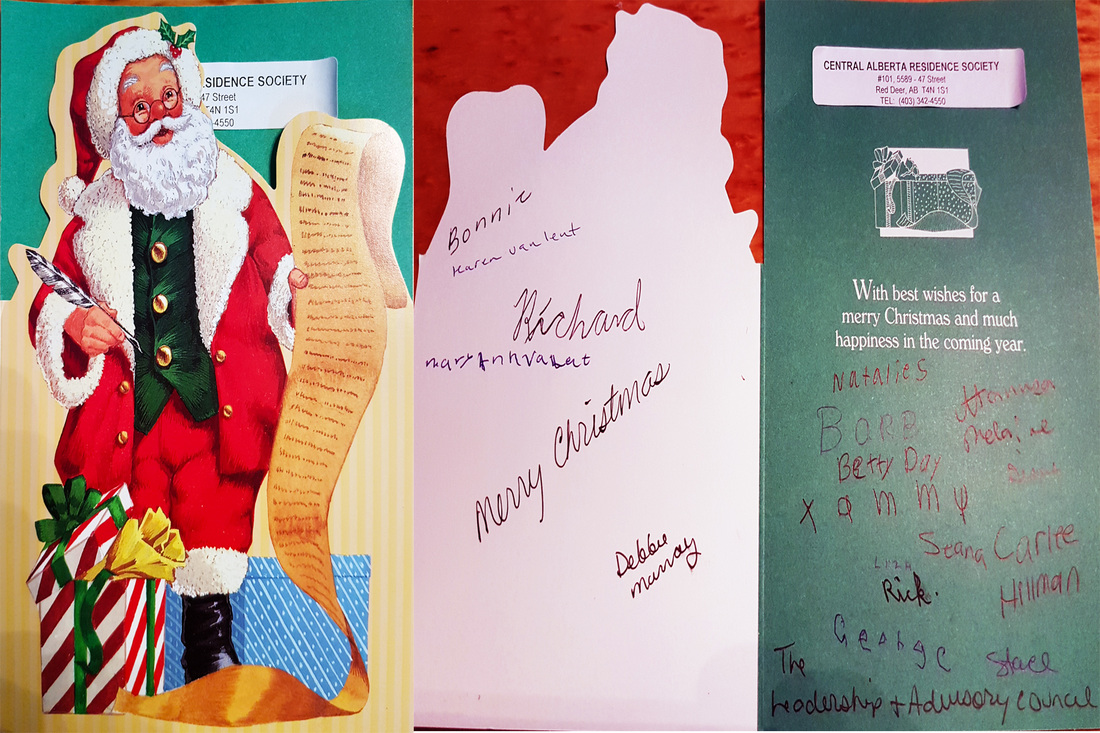 ESIDENCE SOCIETY
47 Street
T4N 1S1
-4550
Bonnie
Karen Vanlent
Richard
Merry Christmas
Debbie
Murray
CENTRAL ALBERTA RESIDENCE SOCIETY
#101, 5589 - 47 Street
Red Deer, AB T4N 1S1
TEL: (403) 342-4550
With best wishes for a
merry Christmas and much
happiness in the coming year.
Natalies
BARB
Melanie
Betty Day
Seana Carlee
Liza
Rick.
Hillman
George
The
Leadership + Advisory Council